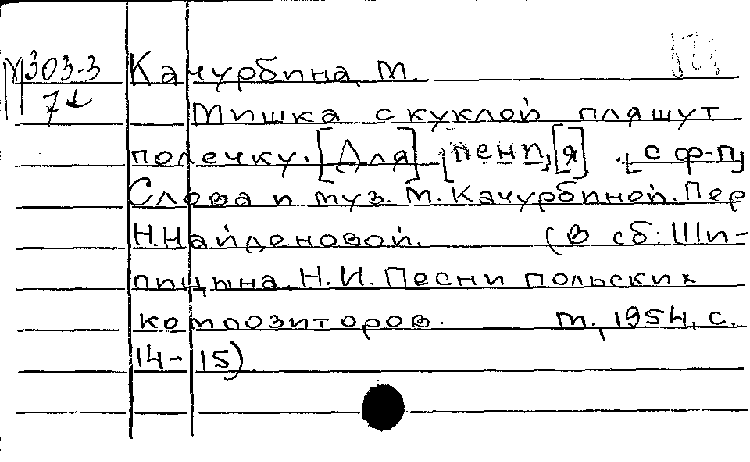 М303-3 Качурбина, М.
7
Мишка с куклой пляшут
полечку. [Для] [пени[я] [с ф-п]
Слова и муз. М. Качурбиной. Пер
Н. Найденовой. (В сб: Ши-
пицына. Н.И. Песни польских
композиторов. М., 1954, с.
14-15)